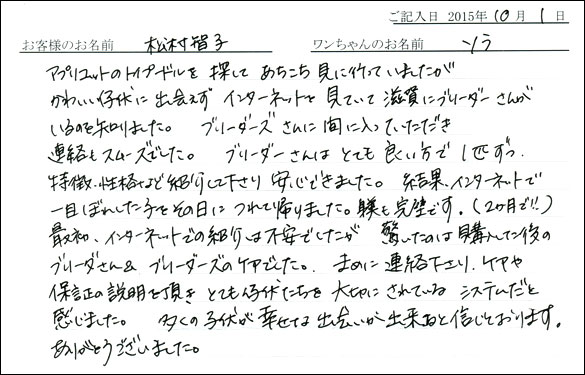 ご記入日 2015年10月1日
お客様のお名前 松村智子 ワンちゃんのお名前 ソラ
アプリコットのトイプードルを探して あちこち見に行っていましたが
かわいい仔犬に出会えず インターネットを見ていて滋賀にブリーダーさんが
いるのを知りました。 ブリーダーズさんに間に入っていただき
連絡もスムーズでした。 ブリーダーさんはとても良い方で1匹ずつ
特徴、性格など紹介して下さり安心できました。 結果、インターネットで
一目ぼれした子をその日につれて帰りました。躾も完璧です。(2ヶ月で!!)
最初、インターネットでの紹介は不安でしたが 驚いたのは購入した後の
ブリーダさん&ブリーダーズのケアでした。 まめに連絡下さり、ケアや
保証の説明を頂き とても仔犬たちを大切にされているシステムだと
感じました。 多くの子犬が幸せな出会いが出来ると信じております。
ありがとうございました。